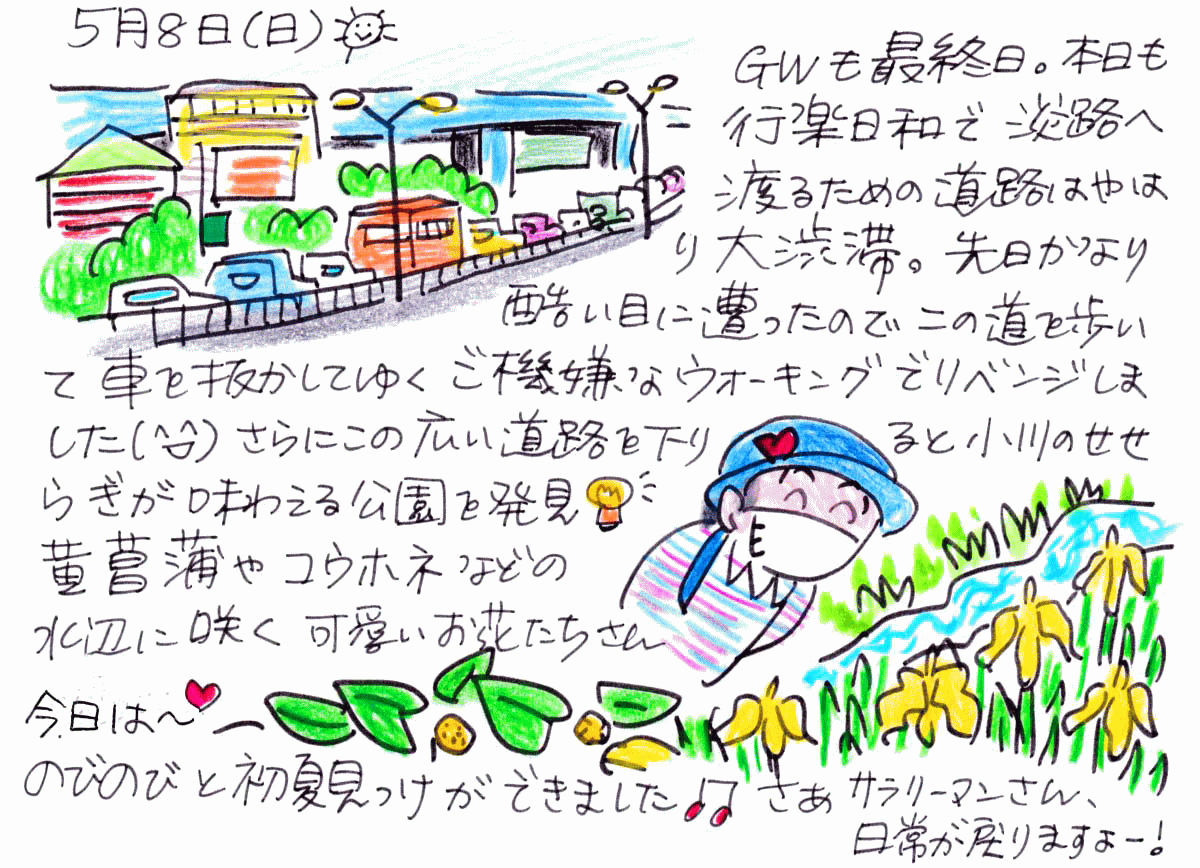 5月8日(日)
GWも最終日。本日も
行楽日和で 淡路へ
渡るための道路はやは
り大渋滞。先日かなり
酷い目に遭ったのでこの道を歩い
て車を抜かしてゆくご機嫌なウォーキングでリベンジしま
した(^^) さらにこの広い道路を下り ると小川のせせ
らぎが味わえる公園を発見
黄菖蒲やコウホネなどの
水辺に咲く可愛いお花たちさん
今日は〜
のびのびと初夏見っけができました さぁ サラリーマンさん、
日常が戻りますよー!